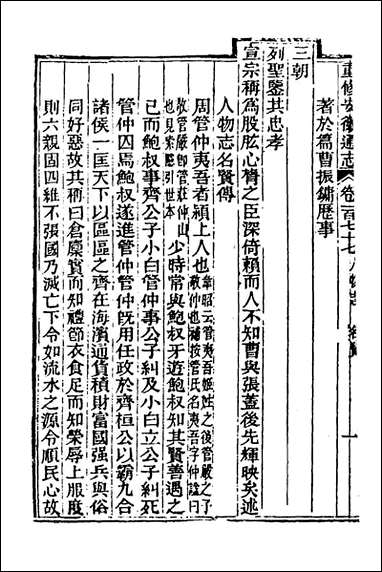 重修安徽通志 卷一百七十七 人物志
著於篇曹振鏞歷事
三朝
列聖鑒其忠孝
宣宗稱爲股肱心膂之臣深倚賴而人不知曹與張蓋後先輝映矣述
人物志名賢傳
周管仲夷吾者潁上人也韋昭云管夷吾姬姓之後管嚴之子敬仲也補按管氏名夷吾字仲諡曰敬管嚴卽管莊仲山也見索隱引世本少時常與鮑叔牙遊鮑叔知其賢善遇之
已而鮑叔事齊公子小白管仲事公子糾及小白立公子糾死
管仲囚焉鮑叔遂進管仲管仲旣用任政於齊桓公以霸九合
諸侯一匡天下以區區之齊在海濱通貨積財富國强兵與俗
同好惡故其稱曰倉廩實而知禮節衣食足而知榮辱上服度
則六親固四維不張國乃滅亡下令如流水之源令順民心故